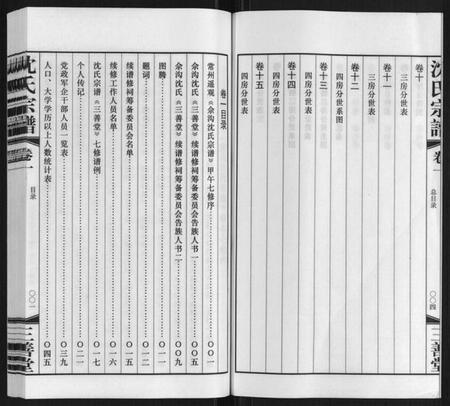 沈氏宗譜
卷一
總目录
〇〇四
三善堂
卷十
三房分世表
卷十一
三房分世表
卷十二
四房分世系图
卷十三
四房分世表
卷十四
四房分世表
卷十五
四房分世表
卷一目录
常州遥观《余沟沈氏宗谱》甲午七修序 〇〇一
余沟沈氏《三善堂》续谱修祠筹备委员会告族人书一 〇〇五
余沟沈氏《三善堂》续谱修祠筹备委员会告族人书二 〇〇九
图腾 〇一一
题词 〇一二
续谱修祠筹备委员会名单 〇一五
续修工作人员名单 〇一六
沈氏宗谱《三善堂》七修谱例 〇一七
个人传记 〇二一
党政军企干部人员一览表 〇三九
人口、大学学历以上人数统计表 〇四五
沈氏宗譜
卷一
目录
〇〇一
三善堂